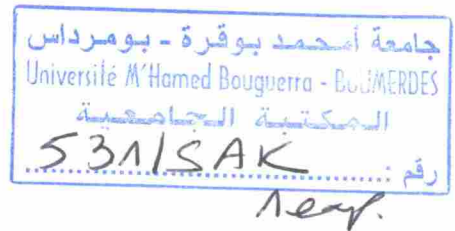 جامعة أمحمد بوقرة - بومرداس
Université M'Hamed Bouguerra - BOUMERDES
المكتبة الجامعية
رقم : 531/SAK
1 exp.